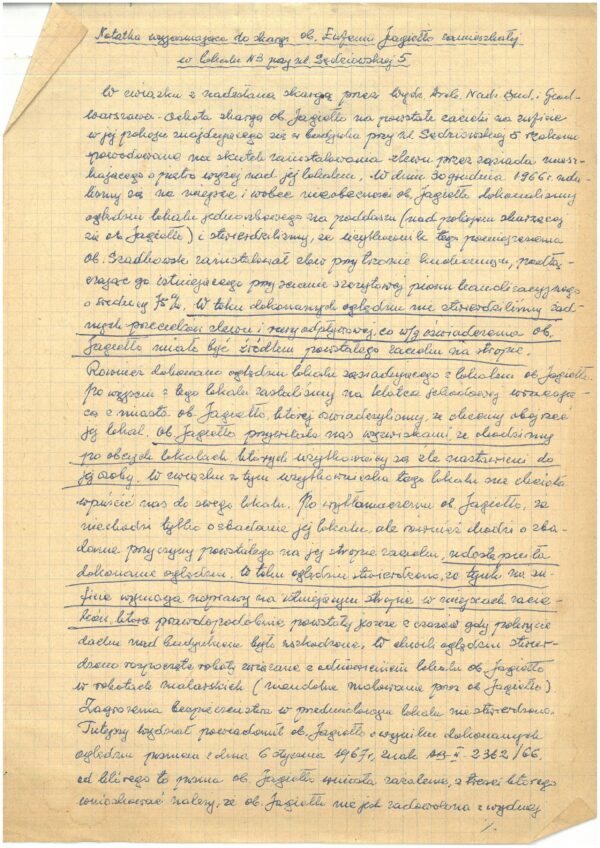 Notatka wyjaśniająca do skargi ob. Eufemii Jagiełło zamieszkałej
w lokalu N3 przy ul. Sędziowskiej 5
W związku z nadesłaną skargą przez Wydz. Arch. Nadz. Bud. i Geod.
Warszawa-Ochota skargą ob. Jagiełło na powstałe zacieki na suficie
w jej pokoju znajdującego się w budynku przy ul. Sędziowskiej 5 rzekomo
spowodowane na skutek zainstalowania zlewu przez sąsiada miesz-
kającego o piętro wyżej nad jej lokalem. W dniu 30 grudnia 1966 r. uda-
liśmy się na miejsce i wobec nieobecności ob. Jagiełło dokonaliśmy
oględzin lokalu jednoizbowego na poddaszu (nad pokojem skarżącej
się ob. Jagiełło) i stwierdziliśmy, że użytkownik tego pomieszczenia
ob. Szadkowski zainstalował zlew przy trzonie kuchennym, podłą-
czając go do istniejącego przy ścianie szczytowej pionu kanalizacyjnego
o średnicy 75%. W toku dokonanych oględzin nie stwierdziliśmy żad-
nych przecieków zlewu i rury odpływowej, co w/g oświadczenia ob.
Jagiełło miało być źródłem powstałego zacieku na stropie.
Również dokonano oględzin lokalu sąsiadującego z lokalem ob. Jagiełło.
Po wyjściu z tego lokalu zastaliśmy na klatce schodowej wracają-
cą z miasta ob. Jagiełło, której oświadczyliśmy, że chcemy obejrzeć
jej lokal. Ob. Jagiełło przywitała nas wyzwiskami, że chodzimy
po obcych lokalach których użytkownicy są źle nastawieni do
jej osoby. W związku z tym użytkowniczka tego lokalu nie chciała
wpuścić nas do swego lokalu. Po wytłumaczeniu ob. Jagiełło, że
nie chodzi tylko o zbadanie jej lokalu, ale również chodzi o zba-
danie przyczyny powstałego na jej stropie zacieku, udostępniła
dokonanie oględzin. W toku oględzin stwierdzono, że tynk na su-
ficie wymaga naprawy na istniejącym stropie w miejscach zacie-
ków, które prawdopodobnie powstały jeszcze z czasów gdy pokrycie
dachu nad budynkiem było uszkodzone. W dniach oględzin stwier-
dzono rozpoczęte roboty związane z odnowieniem lokalu ob. Jagiełło
w robotach malarskich ( malowanie przez ob. Jagiełło)
Zagrożenia bezpieczeństwa w przedmiotowym lokalu nie stwierdzono.
Tutejszy wydział powiadomił ob. Jagiełło o wyniku dokonanych
oględzin pismem z dnia 6 stycznia 1967 r. znak AB-II-2362/66,
od którego to pisma ob. Jagiełło wniosła zażalenie, z treści którego
wnioskować należy, że ob. Jagiełło nie jest zadowolona z wydanej
./.